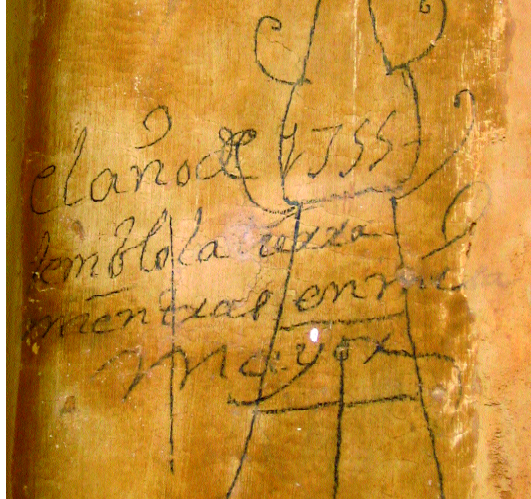 el año de 1755
temblo la tierra
mentras en misa
mayor